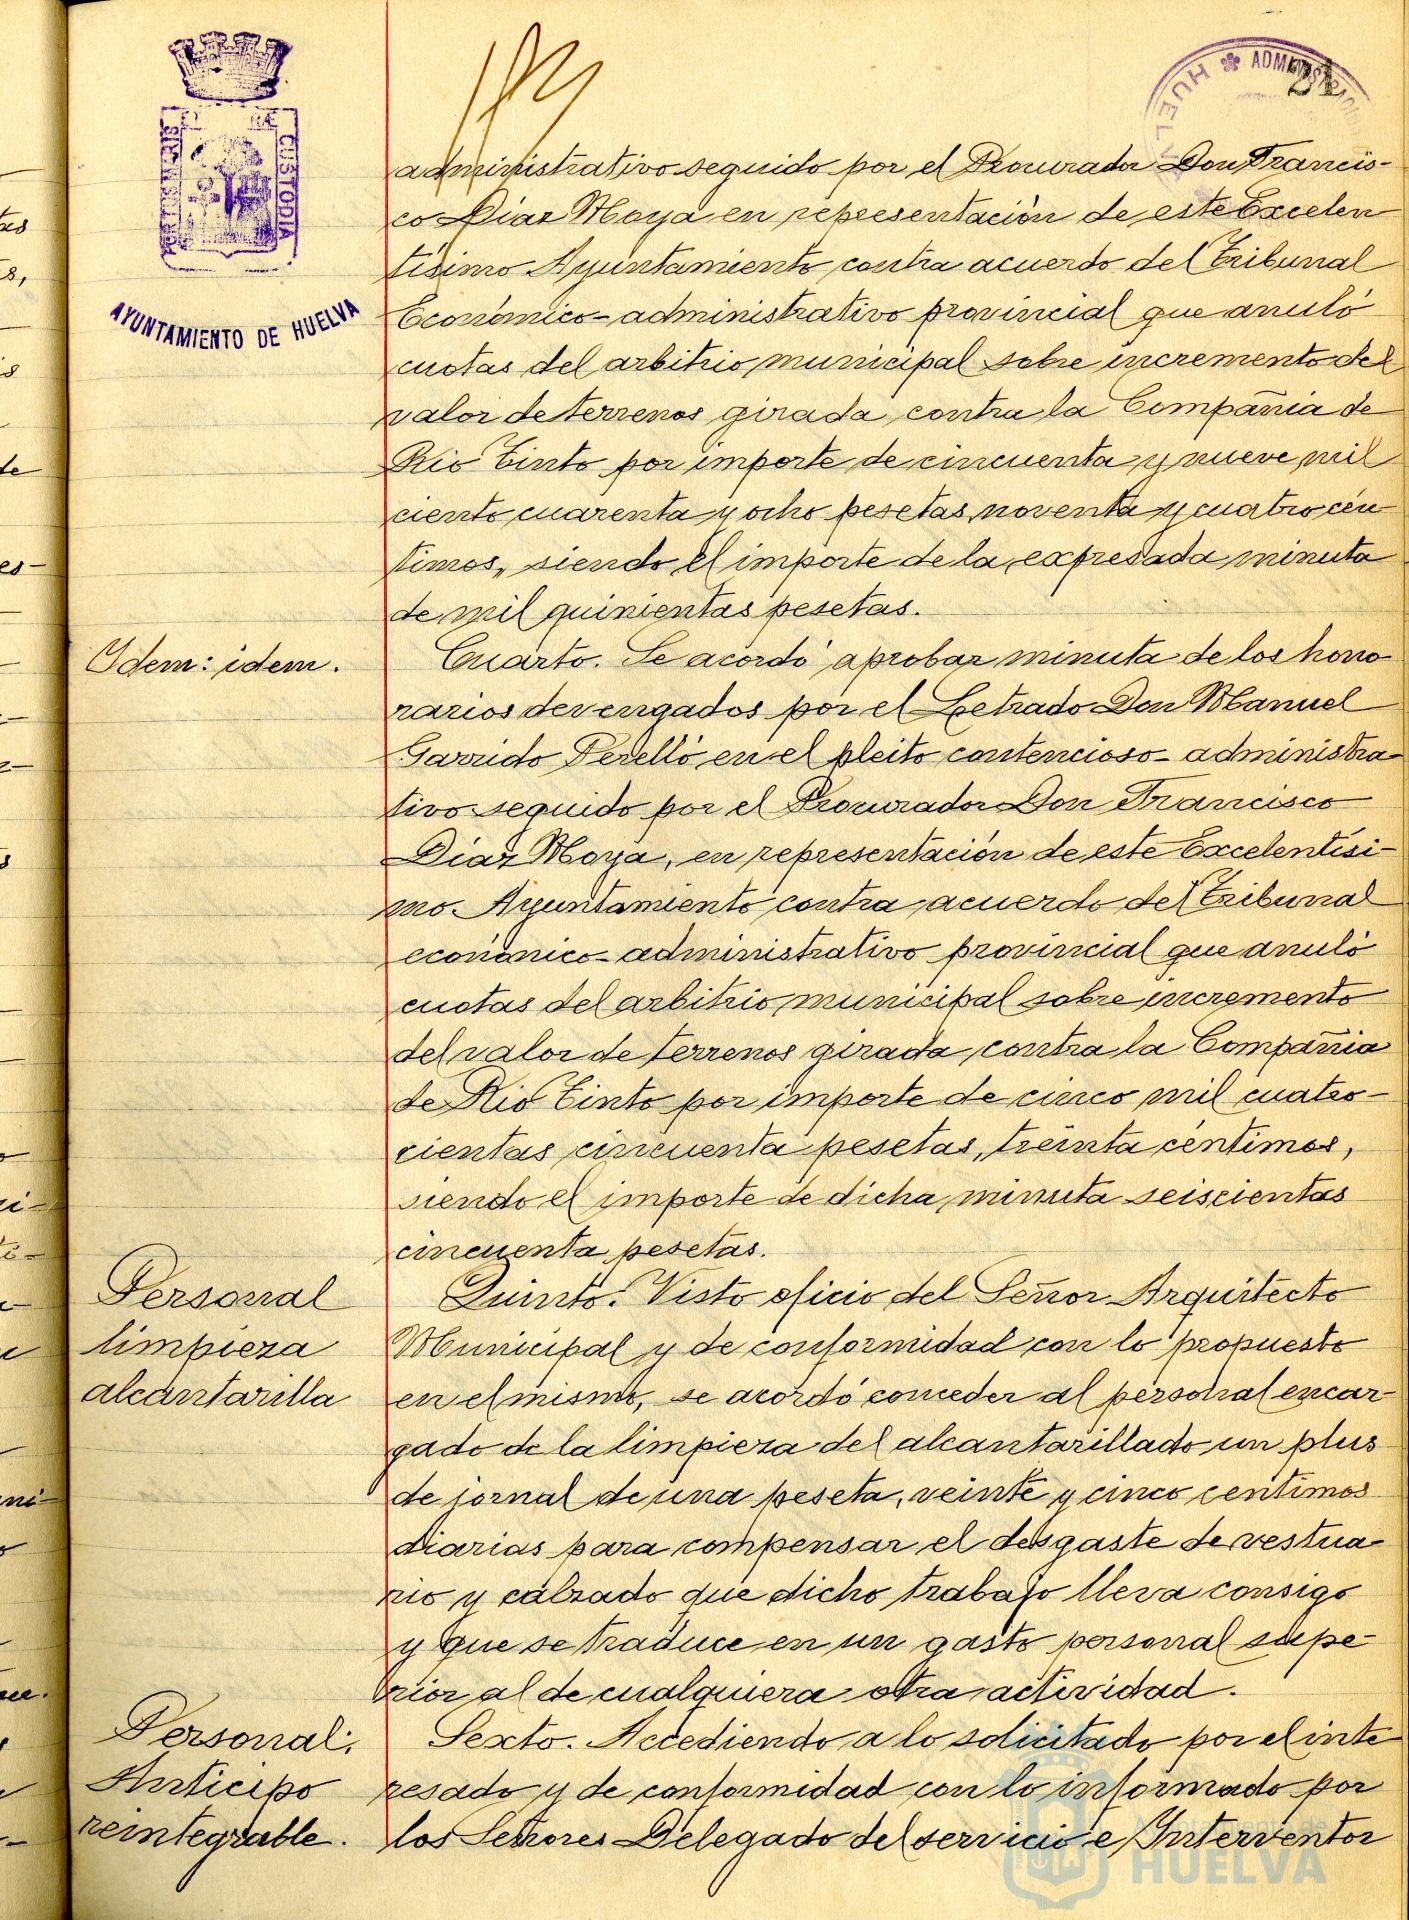 ADMINISTRACION
HUELVA
21
PORTUS MARIS
CUSTODIA
AYUNTAMIENTO DE HUELVA
administrativo seguido por el Procurador Don Francis-
co Díaz Moya en representación de este Excelen
tísimo Ayuntamiento contra acuerdo del Tribunal
Económico-administrativo provincial que anuló
cuotas del arbitrio municipal sobre incremento del
valor de terrenos girada contra la Compañia de
Rio Tinto por importe de cincuenta y nueve mil
ciento cuarenta y ocho pesetas, noventa y cuatro cén-
timos, siendo el importe de la expresada minuta
de mil quinientas pesetas.
Idem: idem.
Cuarto. Se acordó aprobar minuta de los hono
rarios devengados por el Letrado Don Manuel
Garrido Perelló en el pleito contencioso-administra-
tivo seguido por el Procurador Don Francisco
Díaz Moya, en representación de este Excelentísi-
mo Ayuntamiento contra acuerdo del Tribunal
económico-administrativo provincial que anuló
cuotas del arbitrio municipal sobre incremento
del valor de terrenos girada contra la Compañia
de Rio Tinto por importe de cinco mil cuatro-
cientas cincuenta pesetas, treinta céntimos,
siendo el importe de dicha minuta seiscientas
cincuenta pesetas.
Personal
limpieza
alcantarilla
Quinto. Visto oficio del Señor Arquitecto
Municipal y de conformidad con lo propuesto
en el mismo, se acordó conceder al personal encar-
gado de la limpieza del alcantarillado un plus
de jornal de una peseta, veinte y cinco centimos
diarias para compensar el desgaste de vestua-
rio y calzado que dicho trabajo lleva consigo
y que se traduce en un gasto personal supe-
rior al de cualquiera otra actividad.
Personal:
Anticipo
reintegrable.
Sexto. Accediendo a lo solicitado por el inte
resado y de conformidad con lo informado por
los Señores Delegado del servicio e Interventor
HUELVA